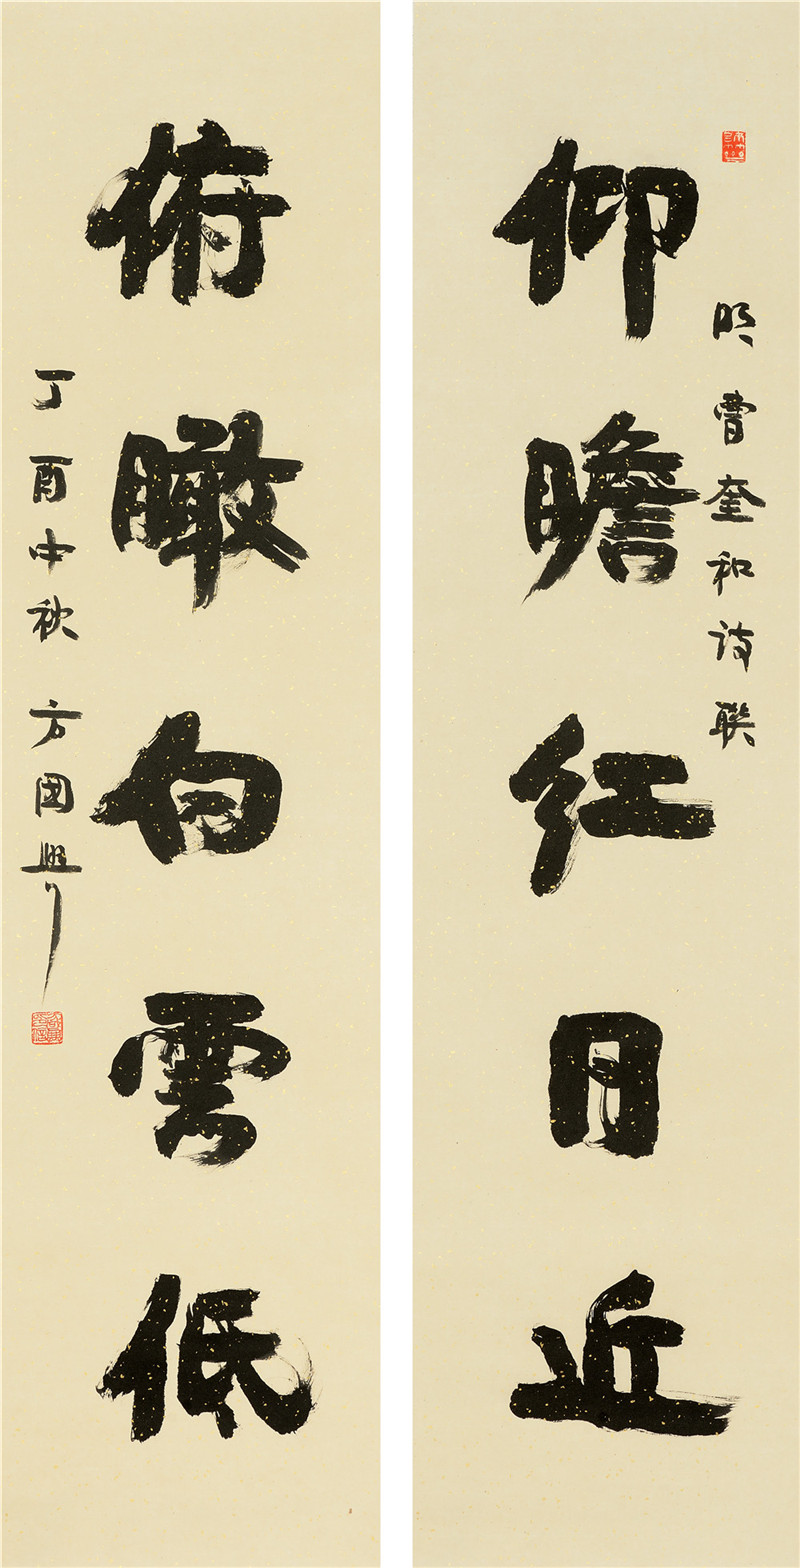 明曹奎和诗联
仰瞻红日近
俯瞰白雲低
丁酉中秋 方國興